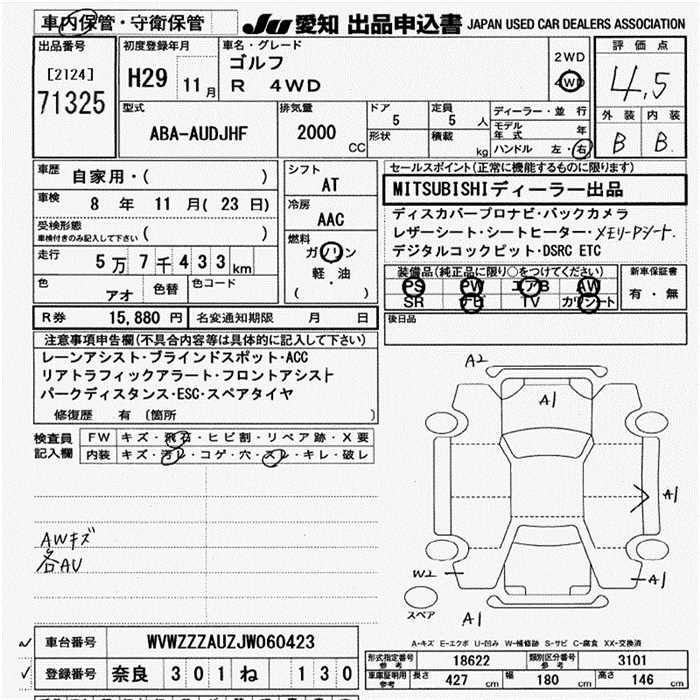 車内保管・守衛保管
JU 愛知 出品申込書 JAPAN USED CAR DEALERS ASSOCIATION
出品番号
[2124]
71325
初度登録年月
H29 11月
車名・グレード
ゴルフ
R 4WD
2WD
4WD
評価点
4,5
外装 内装
B B
型式
ABA-AUDJHF
排気量
2000 CC
ドア
5
定員
5 人
形状
積載
kg
ディーラー・並行
モデル年式 年
ハンドル 左・右
車歴
自家用・( )
車検
8 年 11 月( 23 日)
受検形態
車検付きのみ記入して下さい ( )
走行
5万7千433km
色
アオ
色替
色コード
シフト
AT
冷房
AAC
燃料
ガソリン
軽・油
( )
セールスポイント(正常に機能するものに限ります)
MITSUBISHIディーラー出品
ディスカバープロナビ・バックカメラ
レザーシート・シートヒーター・メモリーPシート.
デジタルコックピット・DSRC ETC
装備品(純正品に限り○をつけてください)
PS PW エアB AW
SR ナビ TV カワシート
新車保証書
有・無
R券 15,880 円
名変通知期限 月 日
後日品
注意事項申告欄(不具合内容等は具体的に記入して下さい)
レーンアシスト・ブラインドスポット・ACC
リアトラフィックアラート・フロントアシスト
パークディスタンス・ESC・スペアタイヤ
修復歴 有 (箇所 )
検査員
記入欄
FW キズ・飛石・ヒビ割・リペア跡・X要
内装 キズ・汚レ・コゲ・穴・スレ・キレ・破レ
AWキズ
各AU
A2
A1
A1
W2
A1
A1
スペア
車台番号 WVWZZZAUZJW060423
登録番号 奈良 301 ね 130
A-キズ E-エクボ U-凹み W-補修跡 S-サビ C-腐食 XX-交換済
形式指定番号 参考 18622
類別区分番号 参考 3101
車庫証明用 参考 長さ 427 cm 幅 180 cm 高さ 146 cm